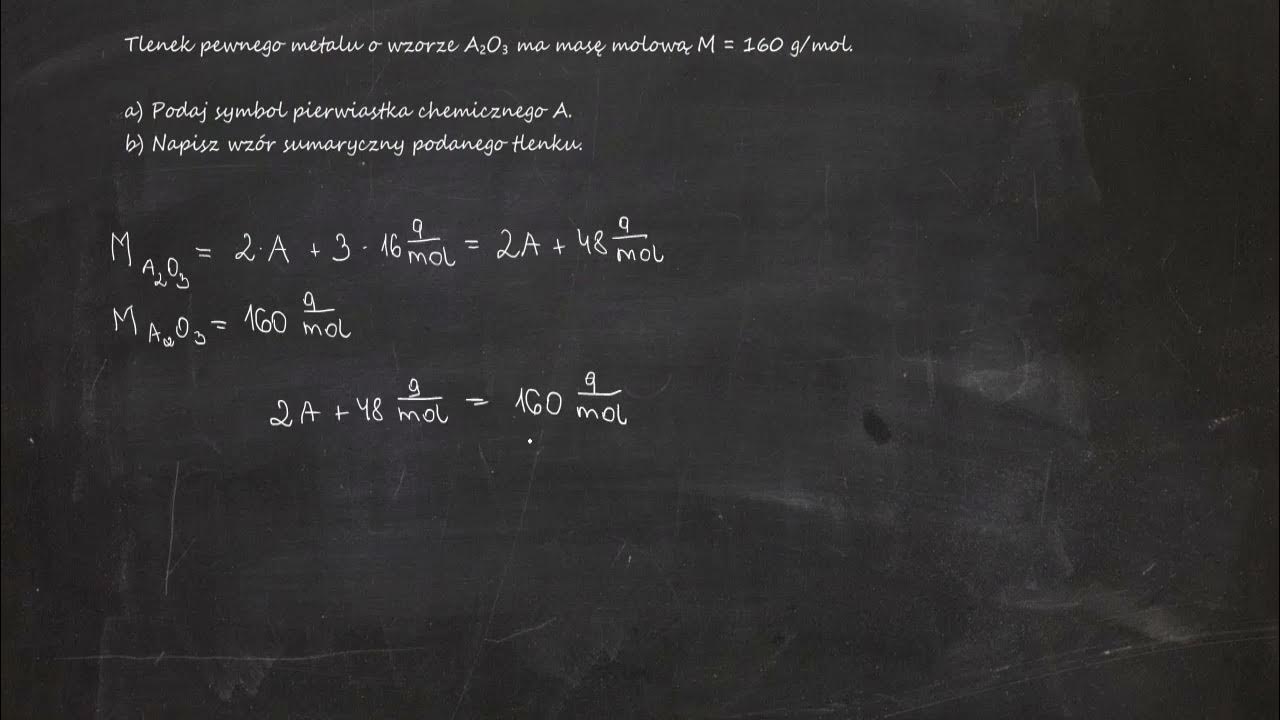 Tlenek pewnego metalu o wzorze A₂O₃ ma masę molową M = 160 g/mol.
a) Podaj symbol pierwiastka chemicznego A.
b) Napisz wzór sumaryczny podanego tlenku.
M A₂O₃ = 2·A + 3·16 g/mol = 2A + 48 g/mol
M A₂O₃ = 160 g/mol
2A + 48 g/mol = 160 g/mol